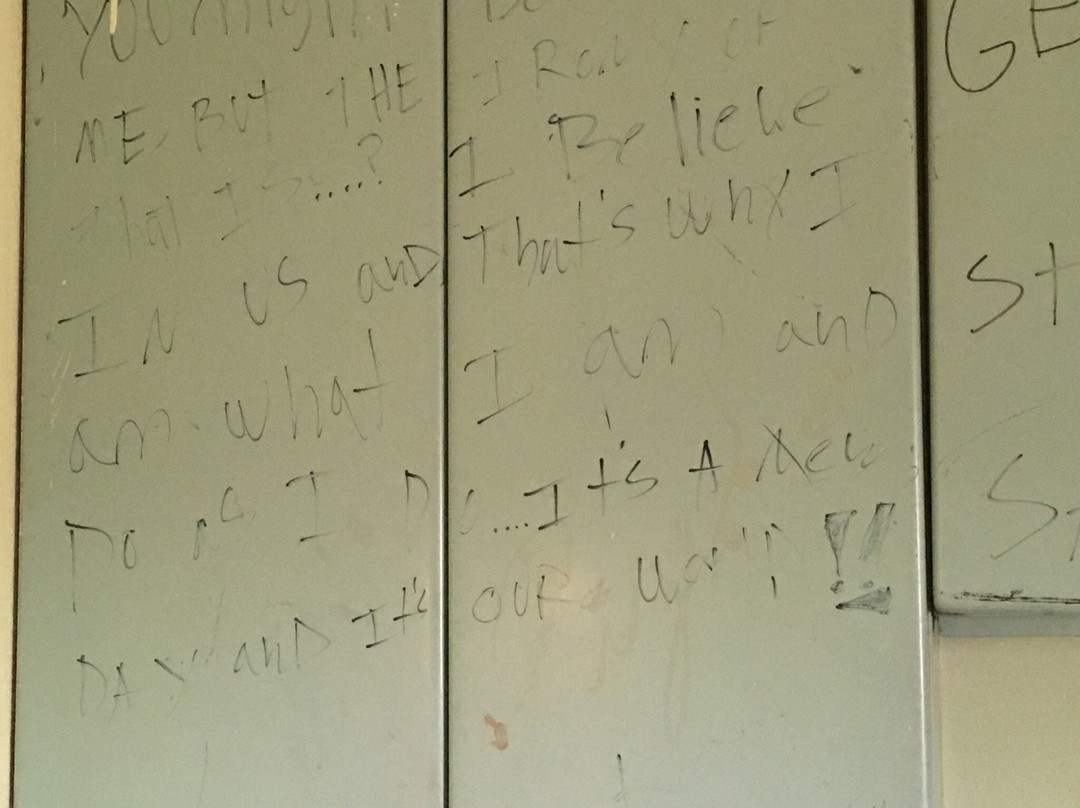 YOU MIGHT
ME. BUT THE I
that IS....? I Believe
IN US anD That's why I
am what I am anD
Do as I Do....It's A New
DAY anD It's OUR WorlD!!
GE
St
St